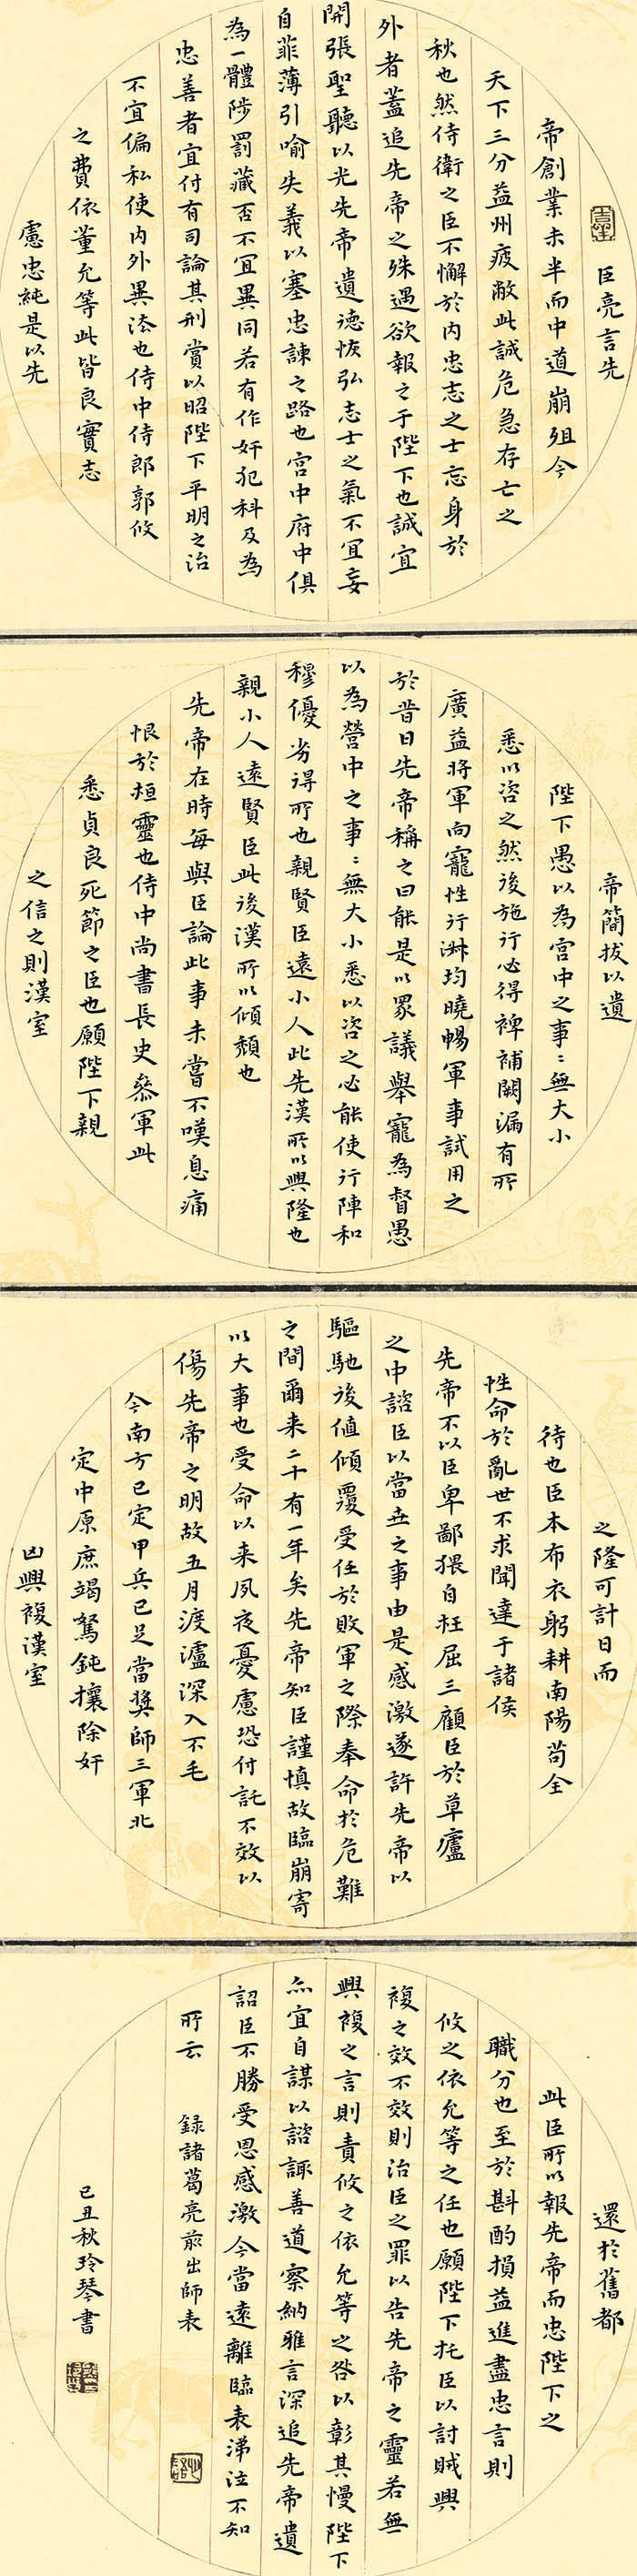 臣亮言先
帝創業未半而中道崩殂今
天下三分益州疲敝此誠危急存亡之
秋也然侍衛之臣不懈於內忠志之士忘身於
外者蓋追先帝之殊遇欲報之于陛下也誠宜
開張聖聽以光先帝遺德恢弘志士之氣不宜妄
自菲薄引喻失義以塞忠諫之路也宮中府中俱
為一體陟罰藏否不宜異同若有作奸犯科及為
忠善者宜付有司論其刑賞以昭陛下平明之治
不宜偏私使內外異法也侍中侍郎郭攸
之費依董允等此皆良實志
慮忠純是以先
帝簡拔以遺
陛下愚以為宮中之事〻無大小
悉以咨之然後施行必得裨補闕漏有所
廣益將軍向寵性行淑均曉暢軍事試用之
於昔日先帝稱之曰能是以眾議舉寵為督愚
以為營中之事〻無大小悉以咨之必能使行陣和
穆優劣得所也親賢臣遠小人此先漢所以興隆也
親小人遠賢臣此後漢所以傾頹也
先帝在時每與臣論此事未嘗不嘆息痛
恨於桓靈也侍中尚書長史參軍此
悉貞良死節之臣也願陛下親
之信之則漢室
之隆可計日而
待也臣本布衣躬耕南陽苟全
性命於亂世不求聞達于諸侯
先帝不以臣卑鄙猥自枉屈三顧臣於草廬
之中諮臣以當世之事由是感激遂許先帝以
驅馳後值傾覆受任於敗軍之際奉命於危難
之間爾来二十有一年矣先帝知臣謹慎故臨崩寄
以大事也受命以来夙夜憂慮恐付託不效以
傷先帝之明故五月渡瀘深入不毛
今南方已定甲兵已足當奬師三軍北
定中原庶竭駑鈍攘除奸
凶興複漢室
還於舊都
此臣所以報先帝而忠陛下之
職分也至於斟酌損益進盡忠言則
攸之依允等之任也願陛下托臣以討賊興
複之效不效則治臣之罪以告先帝之靈若無
興複之言則責攸之依允等之咎以彰其慢陛下
亦宜自謀以諮諏善道察納雅言深追先帝遺
詔臣不勝受恩感激今當遠離臨表涕泣不知
所云 錄諸葛亮前出師表
己丑秋玲琴書